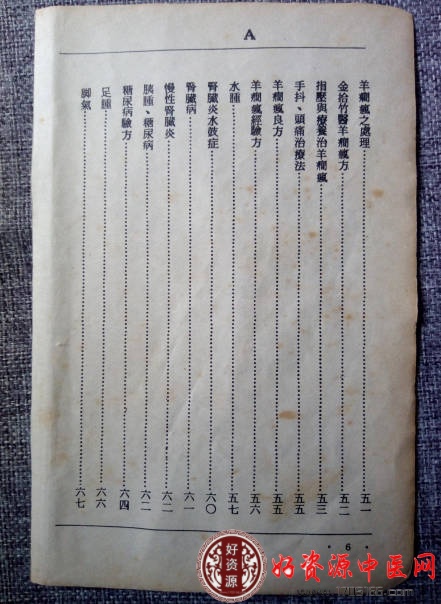 A
羊癇瘋之處理……五一
金拾竹醫羊癇瘋方……五二
指壓與療養治羊癇瘋……五三
手抖、頭痛治療法……五五
羊癇瘋良方……五五
羊癇瘋經驗方……五六
水腫……五七
腎臟炎水鼓症……六〇
腎臟病……六一
慢性腎臟炎……六二
胰腫、糖尿病……六二
糖尿病驗方……六四
足腫……六六
脚氣……六七
· 6 ·
好资源
好资源中医网